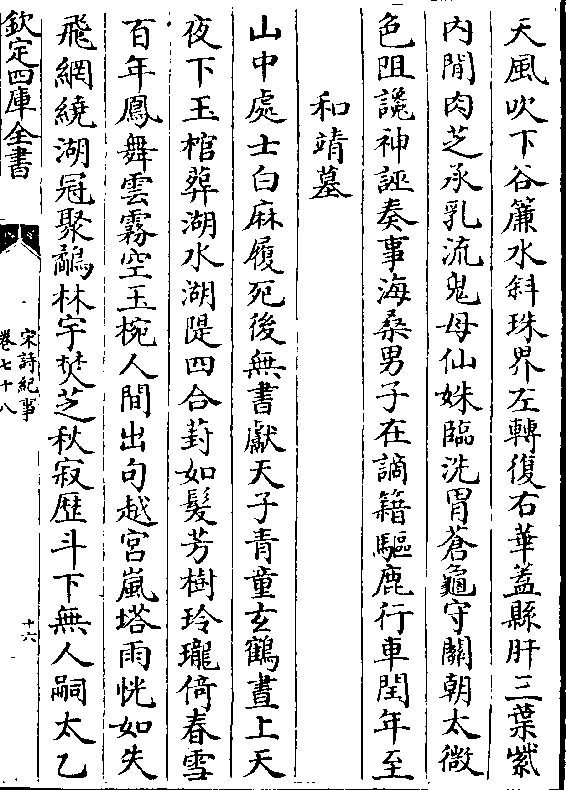 天風吹下谷簾水斜珠界左轉復右華蓋縣肝三葉紫
内閒肉芝承乳流鬼母仙姝臨洗胃蒼龜守關朝太微
色阻讒神誣奏事海桑男子在謫籍驅鹿行車閏年至
和靖墓
山中處士白麻履死後無書獻天子青童玄鶴晝上天
夜下玉棺葬湖水湖隄四合葑如髪芳樹玲瓏倚春雪
百年鳳舞雲霧空玉椀人間出句越宮嵐塔雨恍如失
飛網繞湖冠聚鷸林宇焚芝秋寂歴斗下無人嗣太乙
欽定四庫全書
宋詩紀事
卷七十八
十六